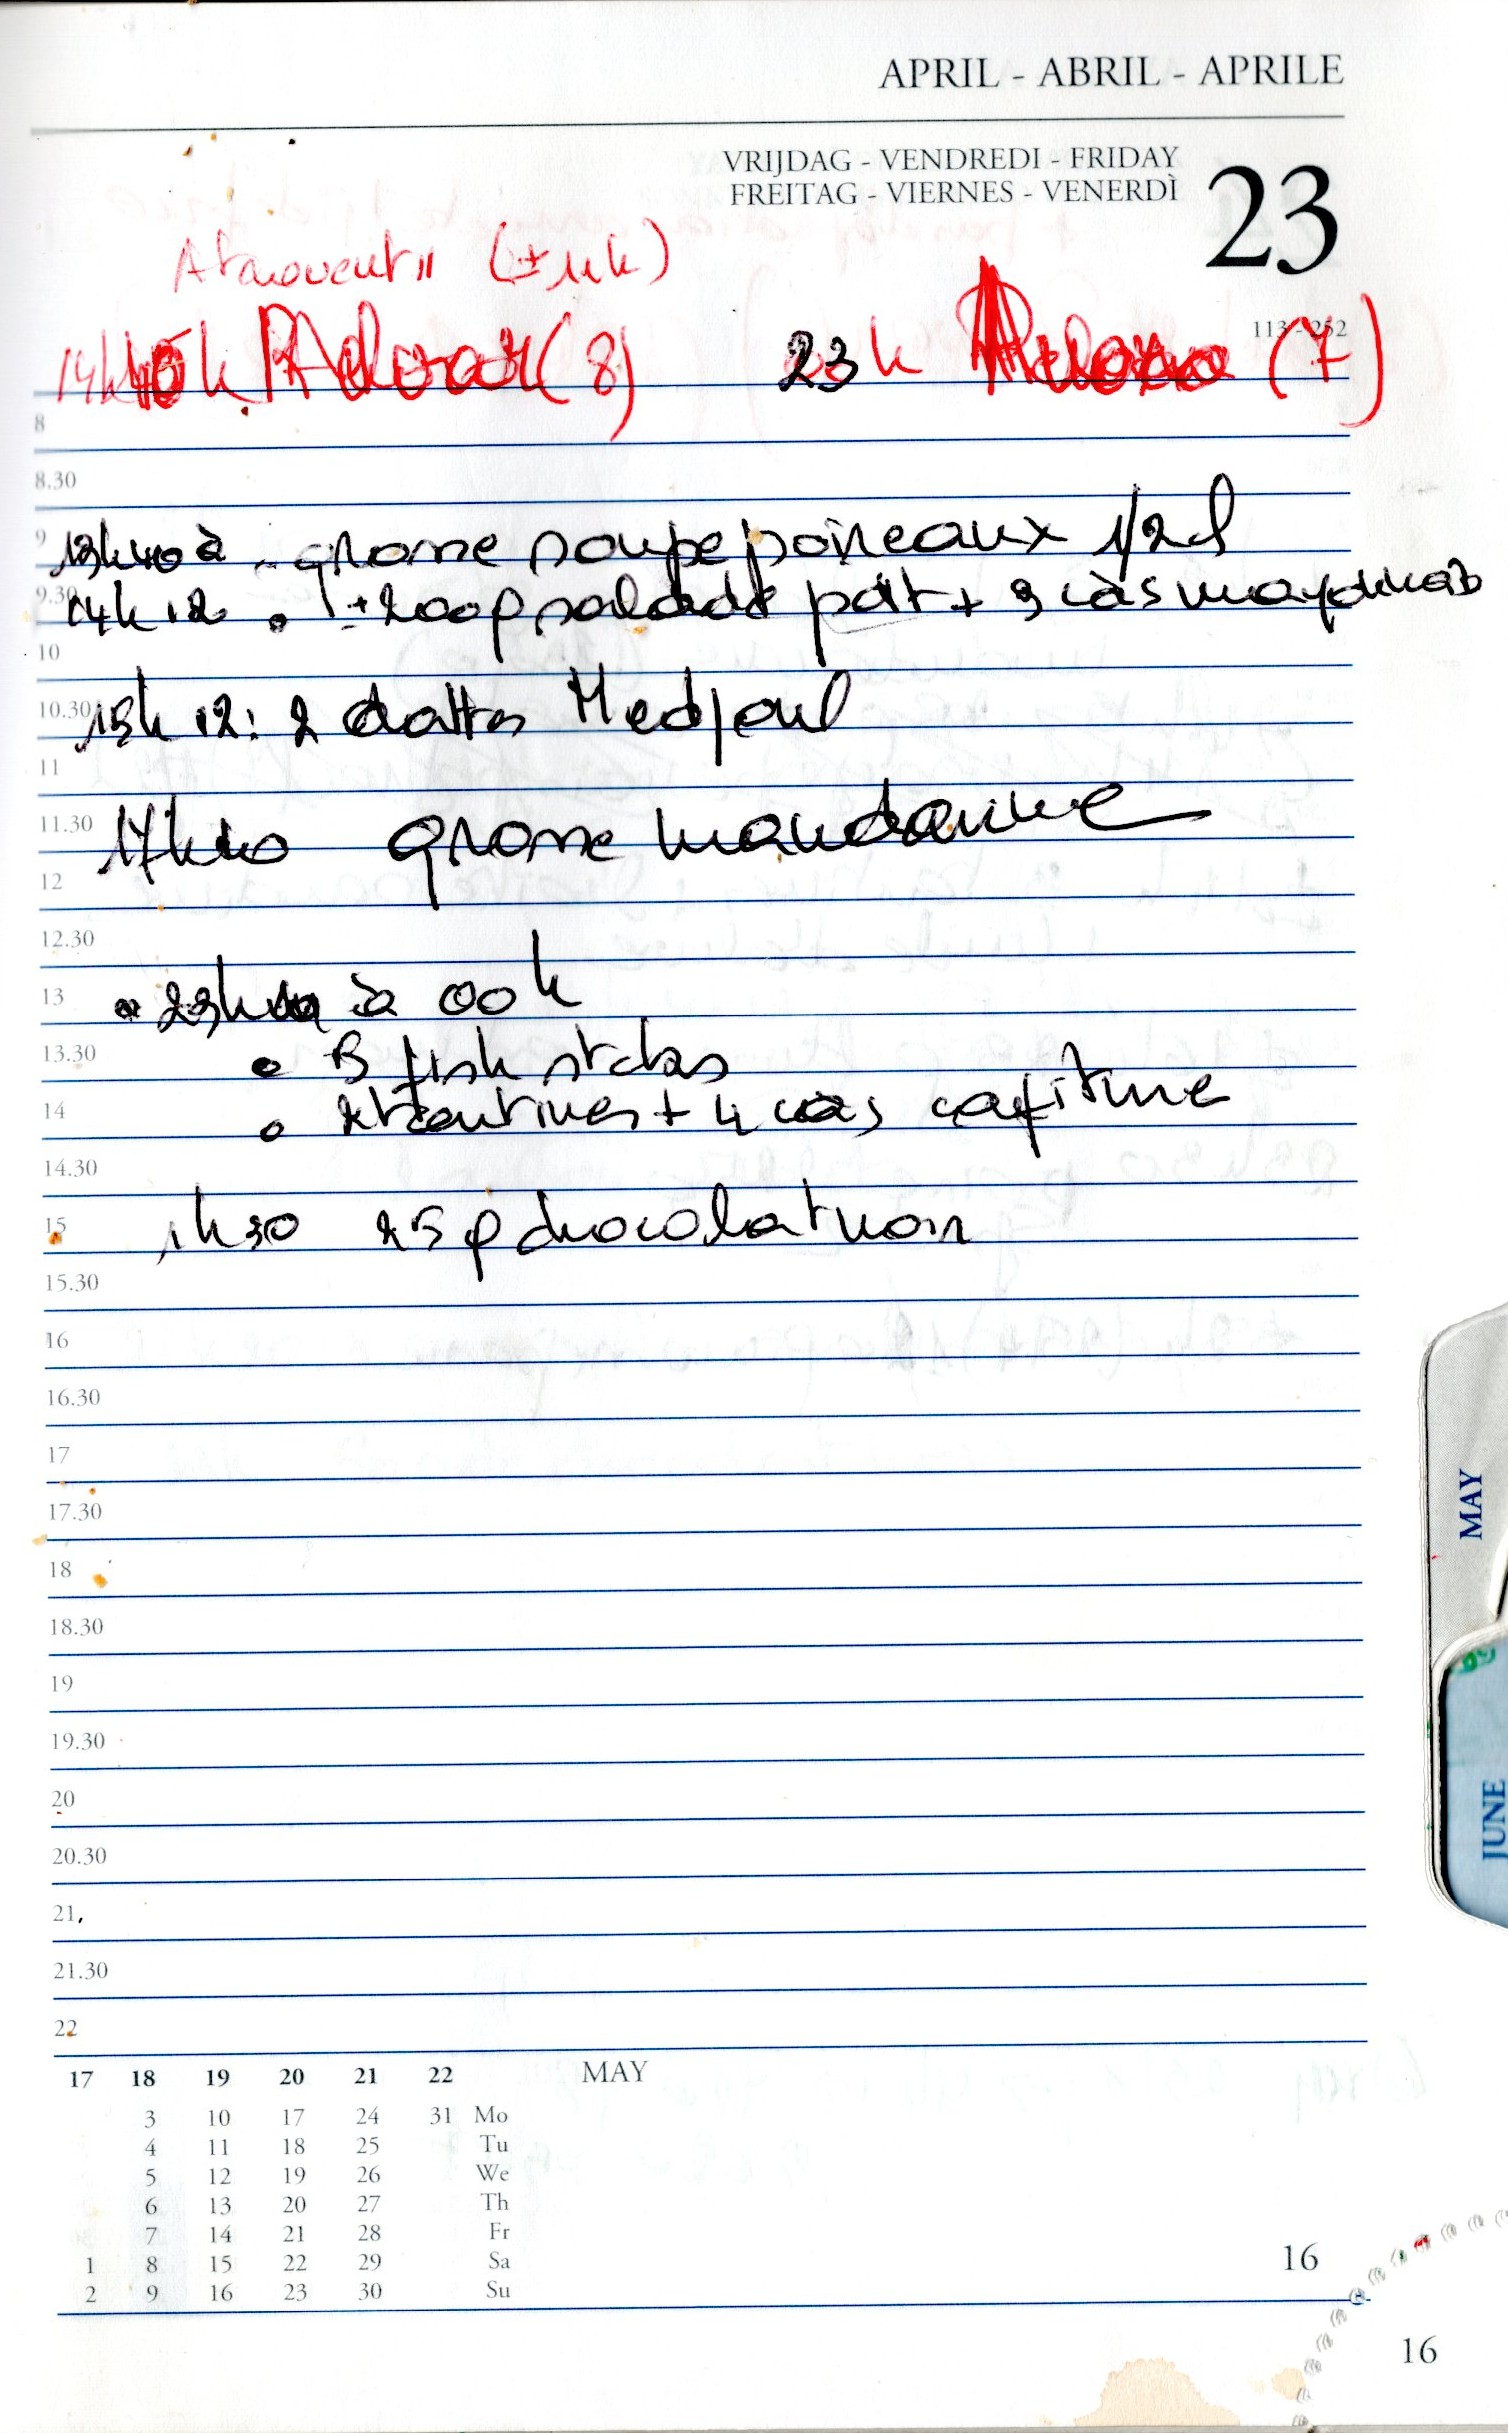 APRIL - ABRIL - APRILE
VRIJDAG - VENDREDI - FRIDAY
FREITAG - VIERNES - VENERDÌ
23
Atrovent 11 (±14h)
113 - 252
(8) 23 h (7)
8
8.30
9 13h40 à grosse soupe poireaux 1/2 l
9.30 14h12 ± 200g salade pdt + 3 càs mayonnais
10
10.30 15h12: 2 dattes Medjoul
11
11.30 17h40 grosse mandarine
12
12.30
13 à 00h
13.30 fish sticks
14 + 4 càs
14.30
15 1h30 25g chocolat noir
15.30
16
16.30
17
17.30
18
18.30
19
19.30
20
20.30
21
21.30
22
17 18 19 20 21 22 MAY
3 10 17 24 31 Mo
4 11 18 25 Tu
5 12 19 26 We
6 13 20 27 Th
7 14 21 28 Fr
1 8 15 22 29 Sa
2 9 16 23 30 Su
16
16
MAY
JUNE